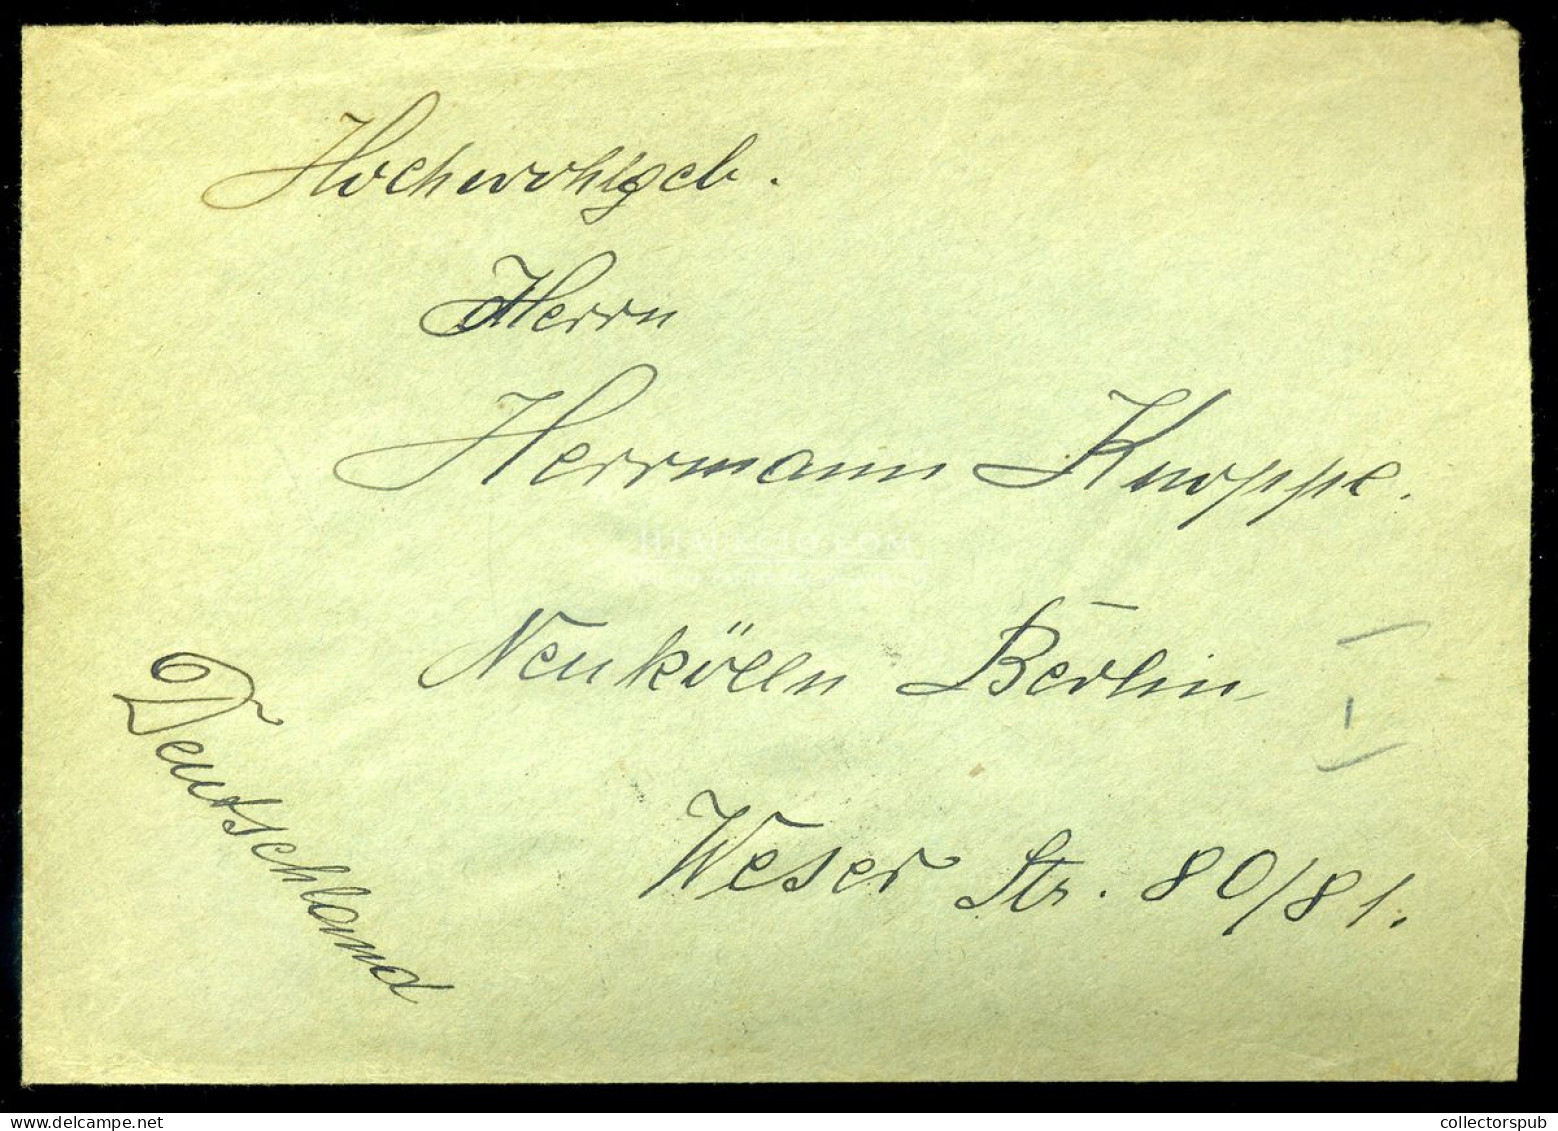 Hochwohlgeb.
Herrn
Herrmann Knoppe.
Neukölln Berlin
Weser Str. 80/81.
Deutschland
www.delcampe.net
collectorspub